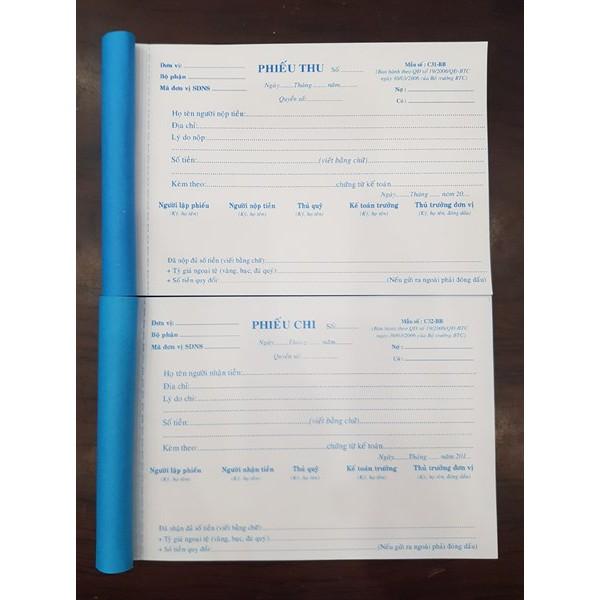 Đơn vị:
PHIẾU THU Số
Mẫu số : C31-BB
Bộ phận
(Ban hành theo QĐ số 19/2006/QĐ-BTC
Mã đơn vị SDNS
ngày 30/03/2006 của Bộ trưởng BTC)
Ngày........Tháng ....... năm
Quyển số:
Nợ :
Có :
Họ tên người nộp tiền:
Địa chỉ:
Lý do nộp:
Số tiền: (viết bằng chữ)
Kèm theo: chứng từ kế toán
Ngày......Tháng ...... năm 20....
Người lập phiếu Người nộp tiền Thủ quỹ Kế toán trưởng Thủ trưởng đơn vị
(Ký, họ tên) (Ký, họ tên) (Ký, họ tên) (Ký, họ tên) (Ký, họ tên, đóng dấu)
Đã nộp đủ số tiền (viết bằng chữ)
+ Tỷ giá ngoại tệ (vàng, bạc, đá quý)
+ Số tiền quy đổi: (Nếu gửi ra ngoài phải đóng dấu)
Đơn vị:
PHIẾU CHI Số:
Mẫu số : C32-BB
Bộ phận
(Ban hành theo QĐ số 19/2006/QĐ-BTC
Mã đơn vị SDNS
ngày 30/03/2006 của Bộ trưởng BTC)
Ngày........Tháng ....... năm
Quyển số:
Nợ :
Có :
Họ tên người nhận tiền:
Địa chỉ:
Lý do chi:
Số tiền: (viết bằng chữ)
Kèm theo: chứng từ kế toán
Ngày......Tháng ...... năm 201...
Người lập phiếu Người nhận tiền Thủ quỹ Kế toán trưởng Thủ trưởng đơn vị
(Ký, họ tên) (Ký, họ tên) (Ký, họ tên) (Ký, họ tên) (Ký, họ tên, đóng dấu)
Đã nhận đủ số tiền (viết bằng chữ)
+ Tỷ giá ngoại tệ (vàng, bạc, đá quý)
+ Số tiền quy đổi: (Nếu gửi ra ngoài phải đóng dấu)